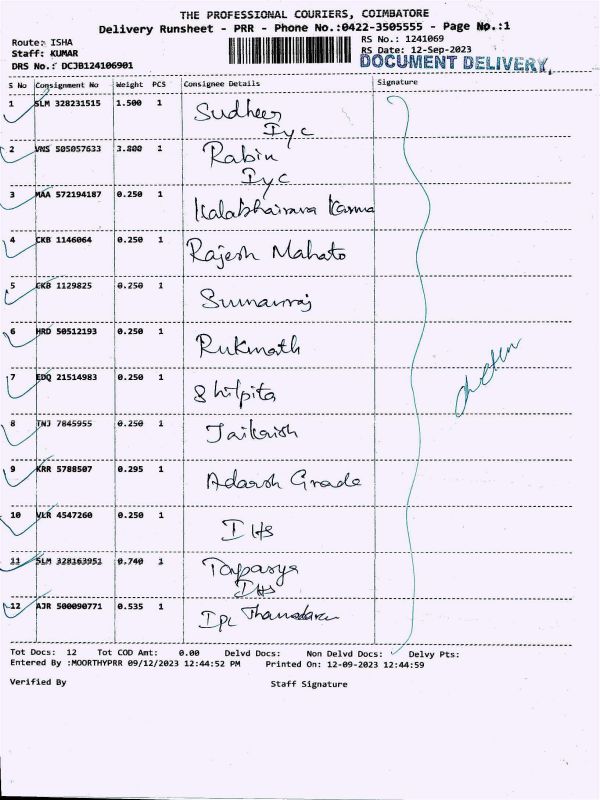 THE PROFESSIONAL COURIERS, COIMBATORE
Delivery Runsheet - PRR - Phone No.:0422-3505555 - Page No.:1
Route: ISHA RS No.: 1241069
Staff: KUMAR RS Date: 12-Sep-2023
DRS No.: DCJB124106901 DOCUMENT DELIVERY,
S No Consignment No Weight PCS Consignee Details Signature
1 SLM 328231515 1.500 1 Sudheer
Iyc
2 VNS 505057633 3.800 1 Rabin
Iyc
3 MAA 572194187 0.250 1 Kalabhairava Karma
4 CKB 1146064 0.250 1 Rajesh Mahato
5 CKB 1129825 0.250 1 Sumanraj
6 HRD 50512193 0.250 1 Rukmath
7 EDQ 21514983 0.250 1 Shilpita
8 TNJ 7845955 0.250 1 Jaikrish
9 KRR 5788507 0.295 1 Adarsh Grade
10 VLR 4547260 0.250 1 IHS
11 SLM 328163951 0.740 1 Tapasya
IHS
12 AJR 500090771 0.535 1 IPC
Tot Docs: 12 Tot COD Amt: 0.00 Delvd Docs: Non Delvd Docs: Delvy Pts:
Entered By :MOORTHYPRR 09/12/2023 12:44:52 PM Printed On: 12-09-2023 12:44:59
Verified By Staff Signature